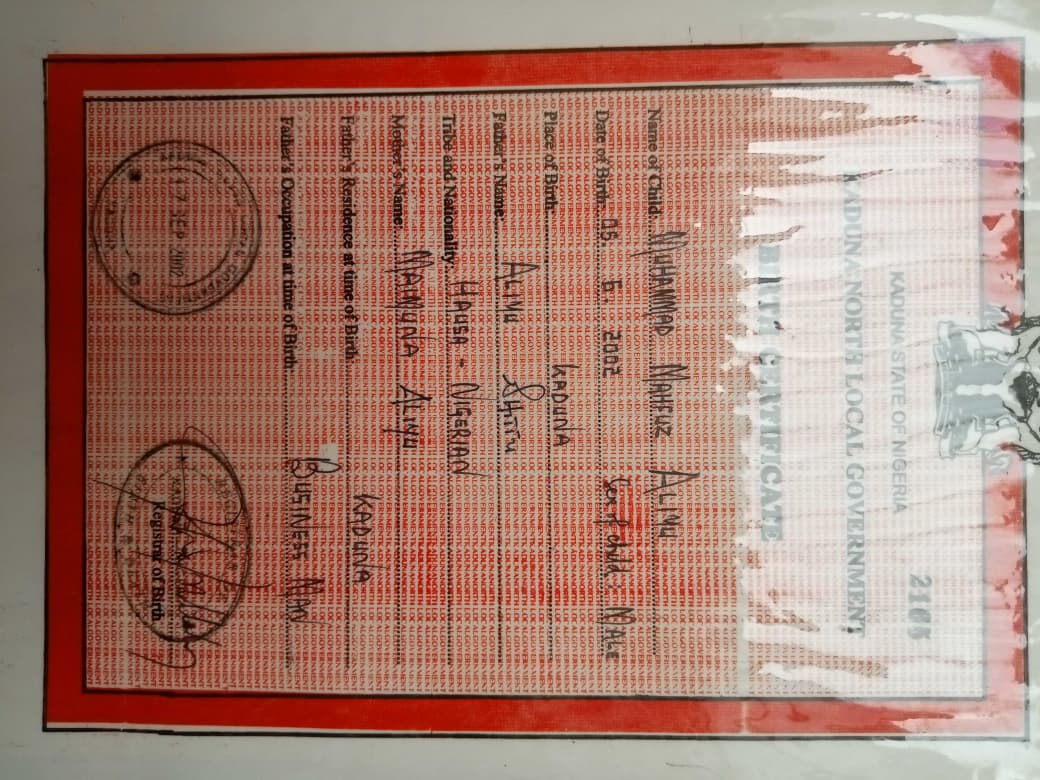 KADUNA STATE OF NIGERIA
KADUNA NORTH LOCAL GOVERNMENT
BIRTH CERTIFICATE
Name of Child: MUHAMMAD MAHFUZ ALIYU
Date of Birth: 05. 6. 2002 Sex of child: MALE
Place of Birth: KADUNA
Father's Name: ALIYU SHITTU
Tribe and Nationality: HAUSA - NIGERIAN
Mother's Name: MAIMUNA ALIYU
Father's Residence at time of Birth KADUNA
Father's Occupation at time of Birth: BUSINESS MAN
17 SEP 2002
Registrar of Birth